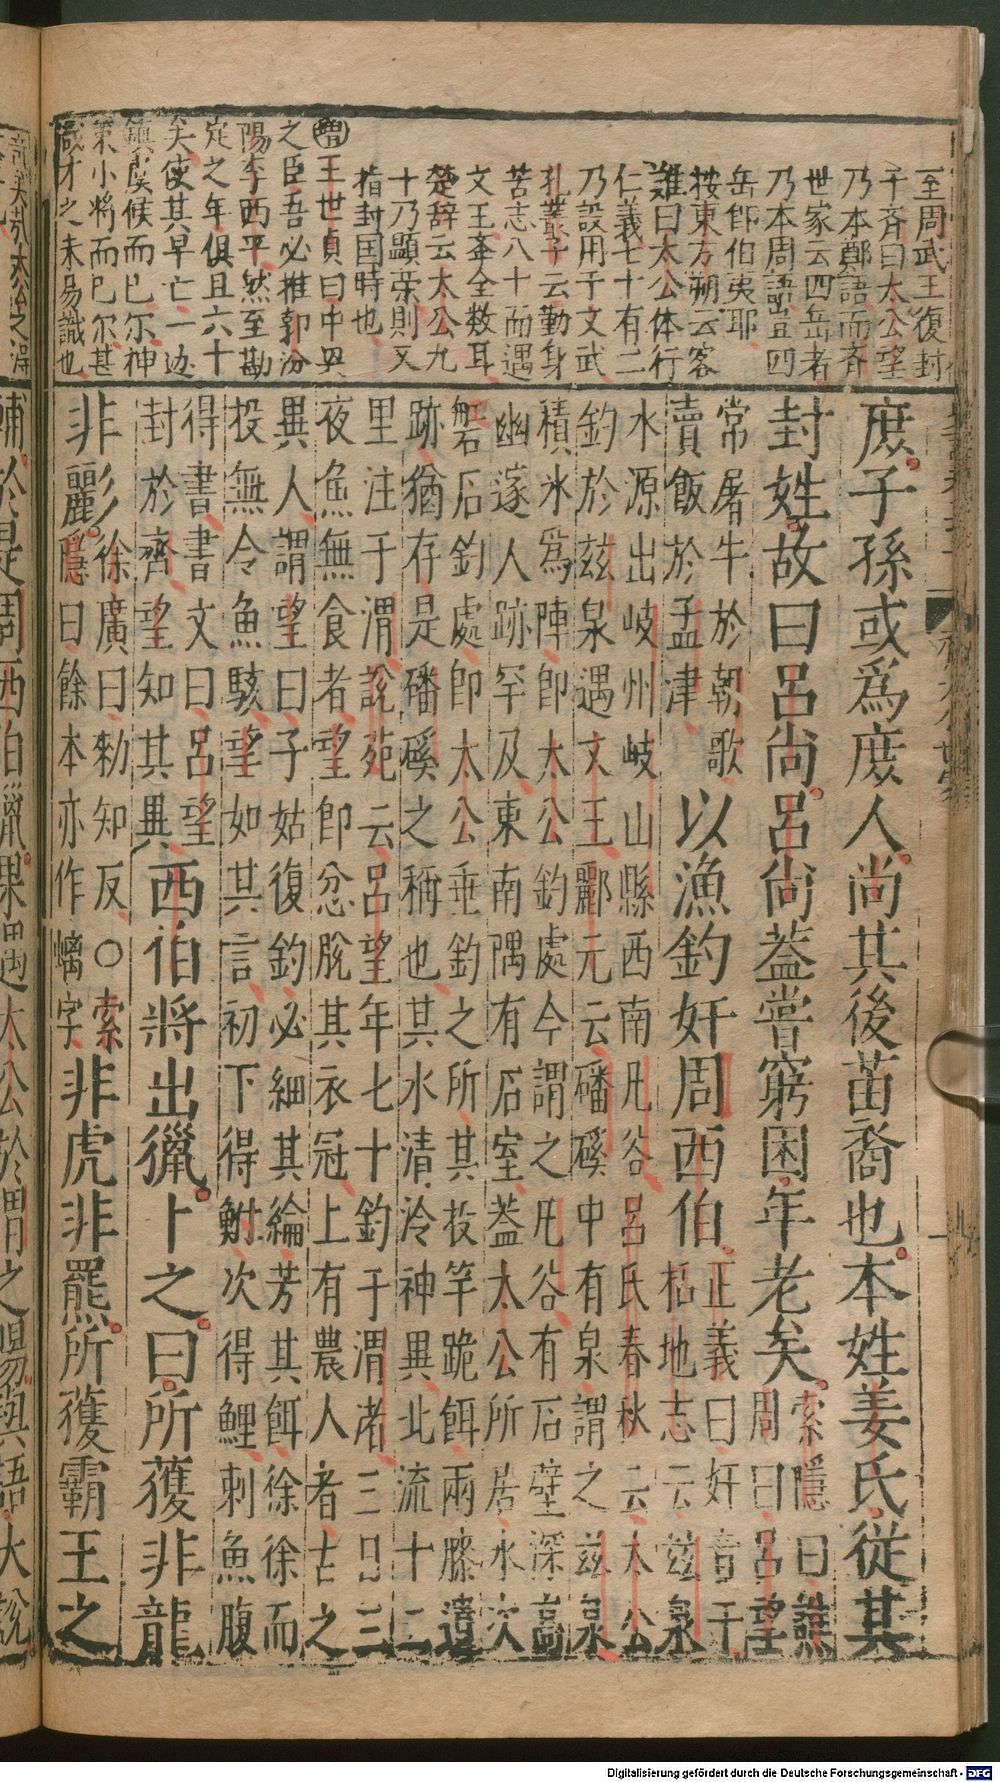 至周武王復封
于斉曰太公望
乃本鄭語而斉
世家云四岳者
乃本周語豈四
岳卽伯夷耶
按東方朔云客
難曰太公体行
仁義七十有二
乃設用于文武
孔叢子云勤身
苦志八十而遇
文王盖全数耳
楚辞云太公九
十乃顕荣則又
指封国時也
增王世貞曰中興
之臣吾必推郭汾
陽李西平然至勘
定之年俱且六十
矣使其早亡一边
鎮虞候而已尓神
策小將而已尔甚
哉才之未易識也
庶子孫或爲庶人尚其後苗裔也本姓姜氏從其
封姓故曰呂尚呂尚蓋嘗窮困年老矣
索隱曰譙
周曰呂望
常屠牛於朝歌
賣飯於孟津
以漁釣奸周西伯
正義曰奸音干
括地志云兹泉
水源出岐州岐山縣西南凡谷呂氏春秋云太公
釣於兹泉遇文王酈元云磻磎中有泉謂之兹泉
積水爲陣卽太公釣處今謂之凡谷有石壁深高
幽邃人跡罕及東南隅有石室蓋太公所居水次
磐石釣處卽太公垂釣之所其投竿跪餌兩膝遺
跡猶存是磻磎之稱也其水清泠神異北流十二
里注于渭說苑云呂望年七十釣于渭渚三日三
夜魚無食者望卽忿脫其衣冠上有農人者古之
異人謂望曰子姑復釣必細其綸芳其餌徐徐而
投無令魚駭望如其言初下得鮒次得鯉刺魚腹
得書書文曰呂望
封於齊望知其異
西伯將出獵卜之曰所獲非龍
非彲
徐廣曰勑知反〇索
隱曰餘本亦作螭字
非虎非羆所獲霸王之
輔於是周西伯獵果遇太公於渭之陽與語大說
Digitalisierung gefördert durch die Deutsche Forschungsgemeinschaft - DFG